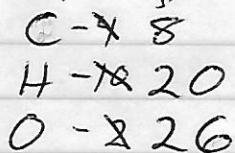 C - 8
H - 20
O - 26